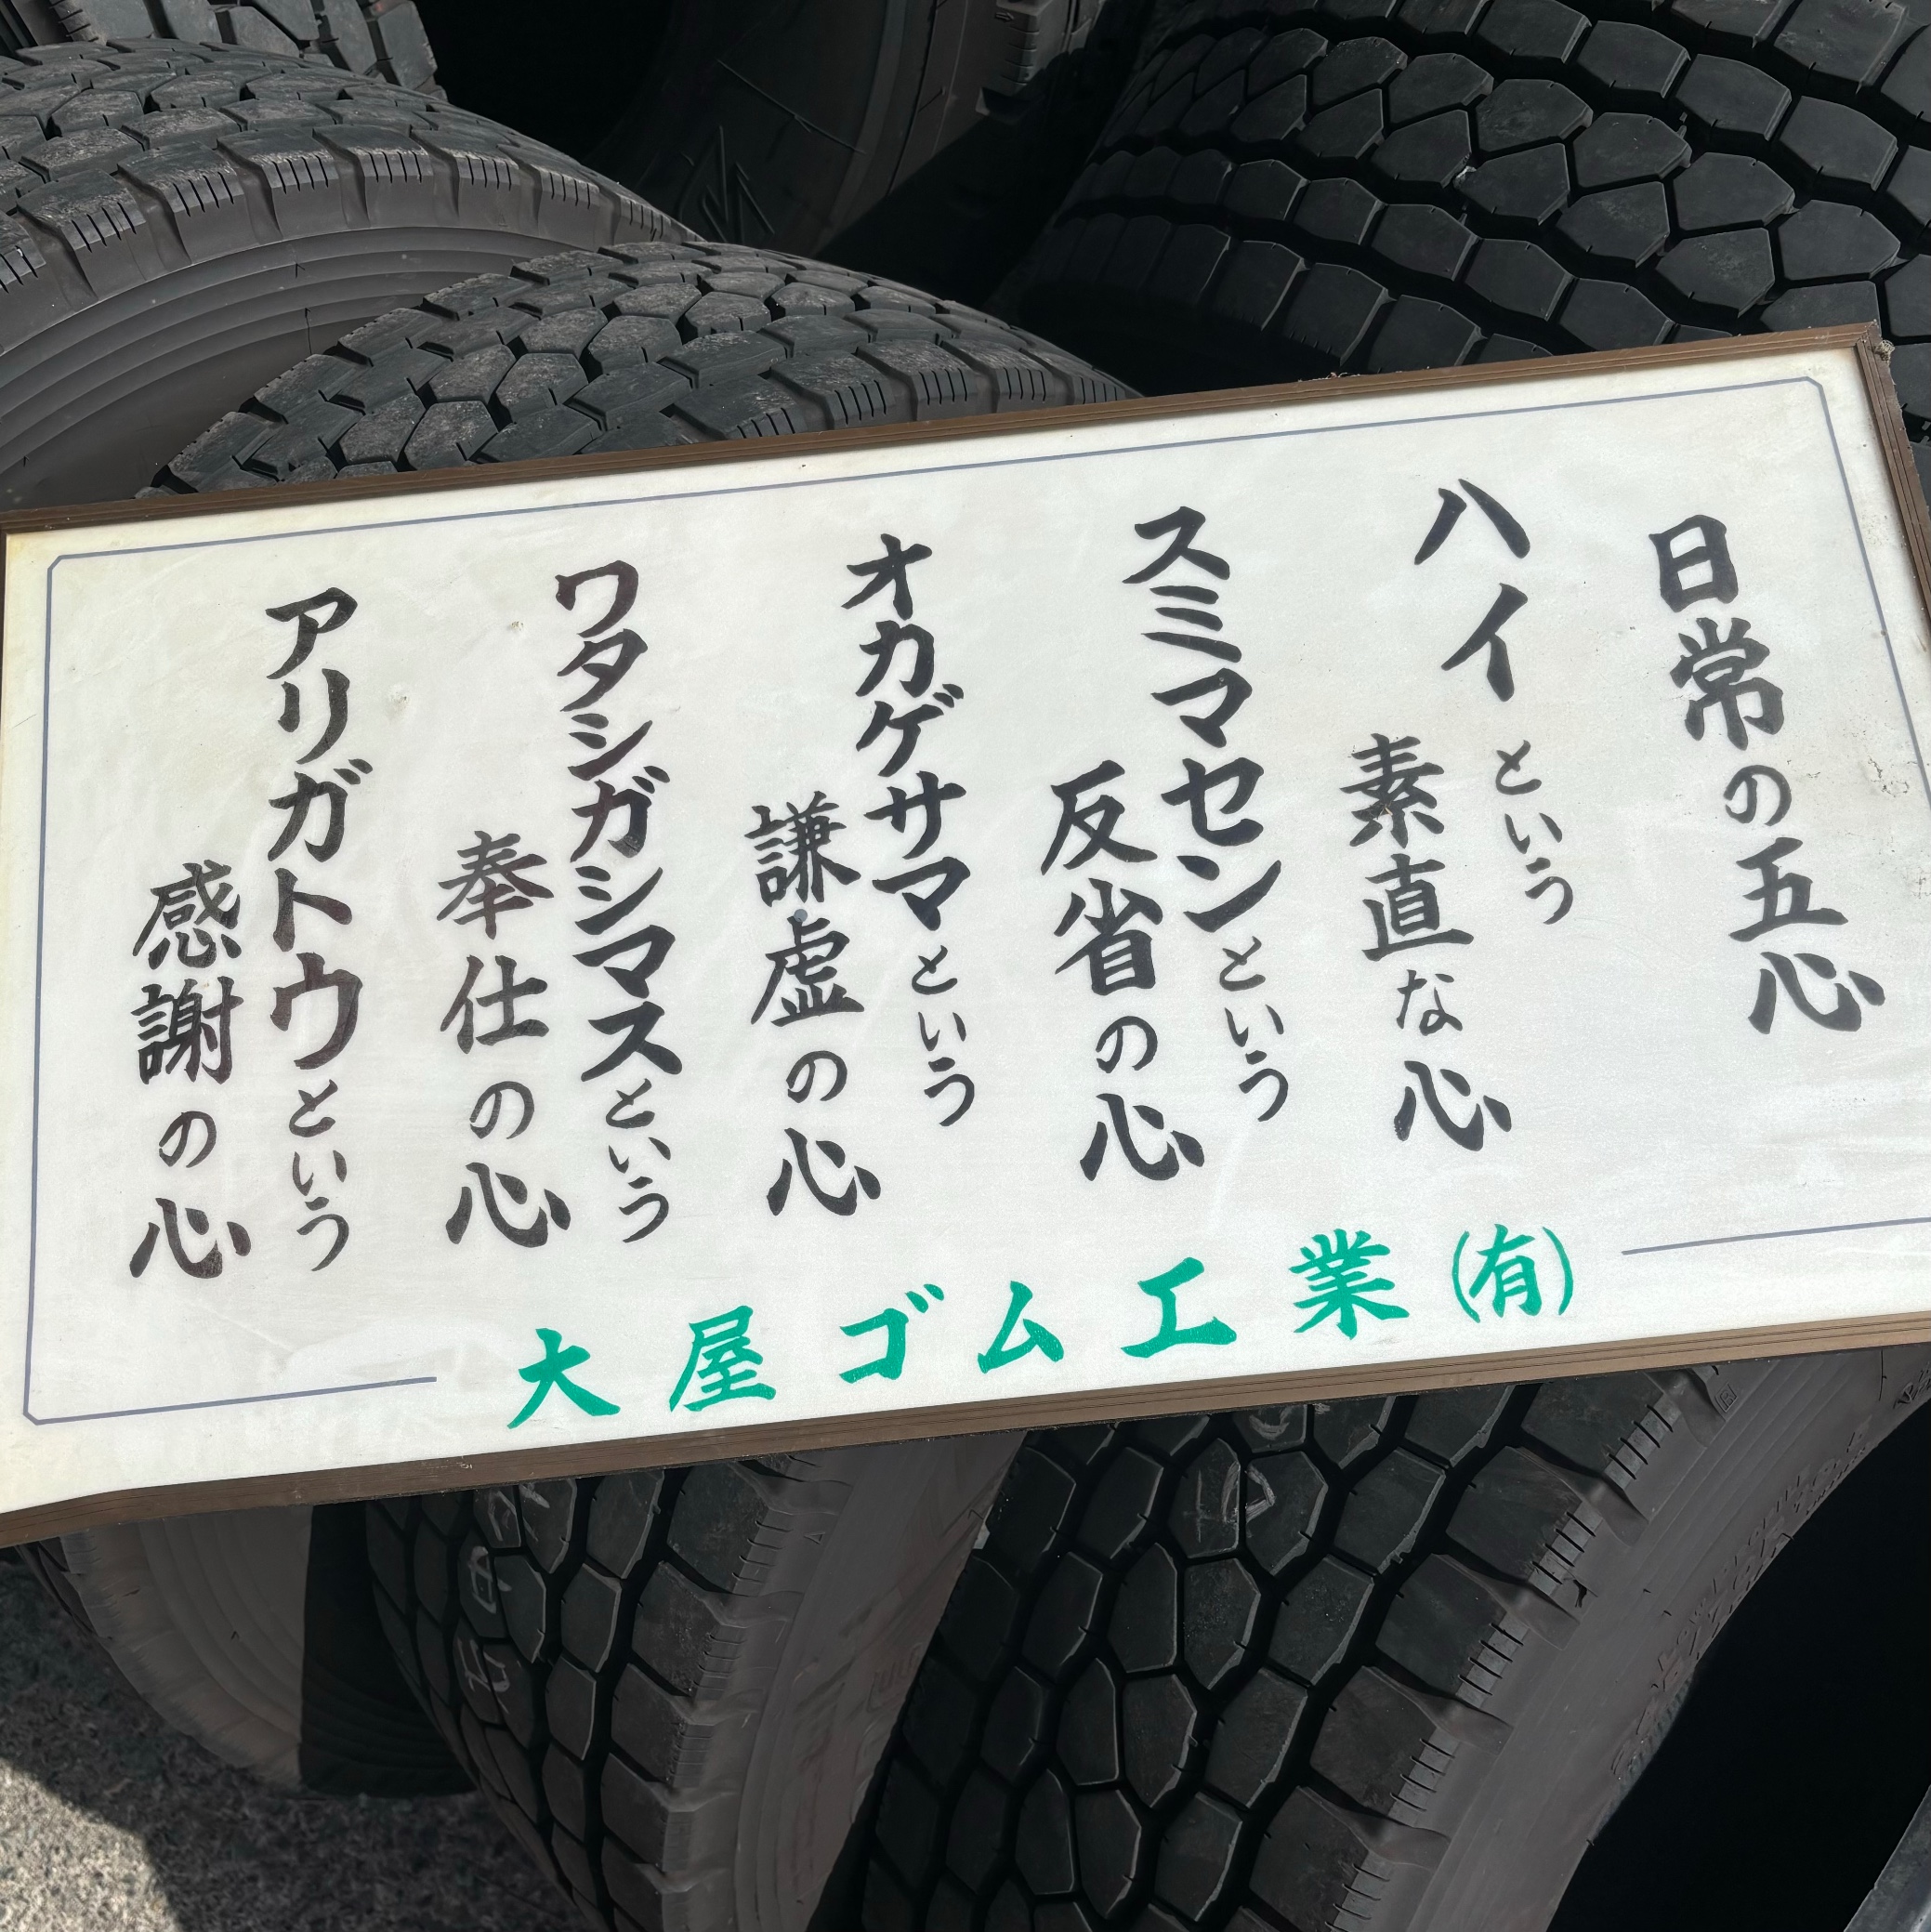 日常の五心
ハイという
素直な心
スミマセンという
反省の心
オカゲサマという
謙虚の心
ワタシガシマスという
奉仕の心
アリガトウという
感謝の心
大屋ゴム工業(有)